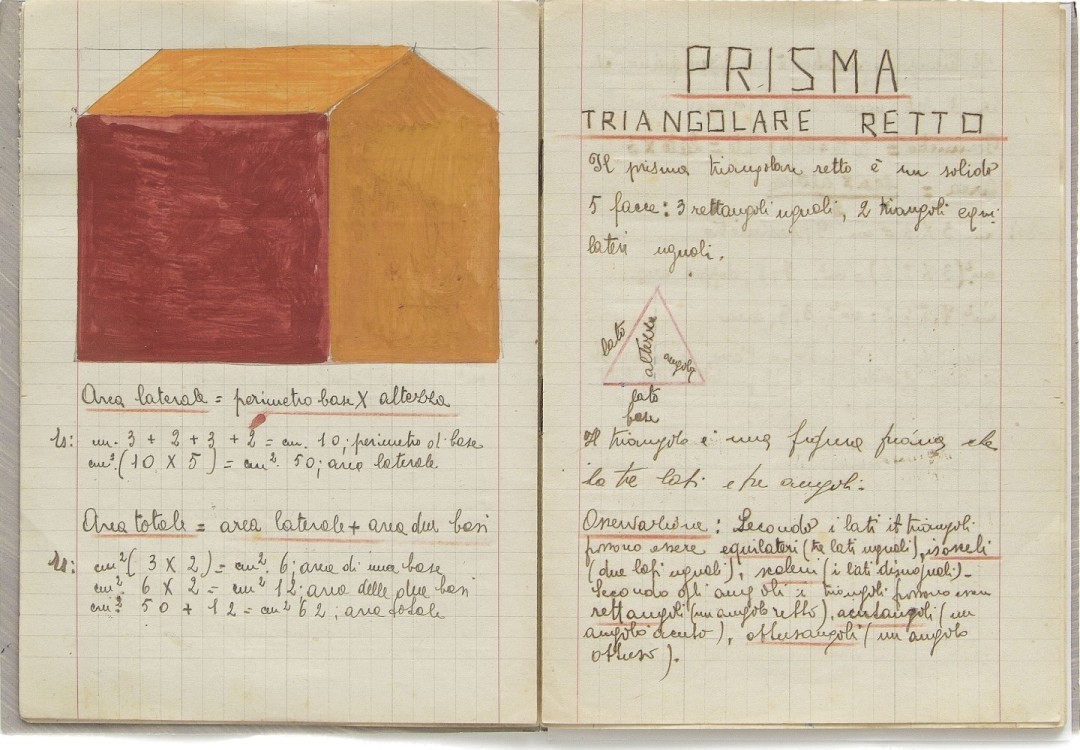 Area laterale = perimetro base X altezza
Es: cm. 3 + 2 + 3 + 2 = cm. 10; perimetro di base
cm². (10 X 5) = cm². 50; area laterale.
Area totale = area laterale + area due basi
Es: cm² (3 X 2) = cm². 6; area di una base
cm². 6 X 2 = cm² 12; area delle due basi
cm². 50 + 12 = cm² 62; area totale
PRISMA
TRIANGOLARE RETTO
Il prisma triangolare retto è un solido
5 facce: 3 rettangoli uguali, 2 triangoli equi-
lateri uguali.
lato
altezza
angolo
lato
base
Il triangolo è una figura piana che
ha tre lati e tre angoli.
Osservazione: Secondo i lati il triangoli
possono essere equilateri (tre lati uguali), isosceli
(due lati uguali), scaleni (i lati disuguali)-
Secondo gli angoli i triangoli possono essere
rettangoli (un angolo retto), acutangoli (un
angolo acuto), ottusangoli (un angolo
ottuso).